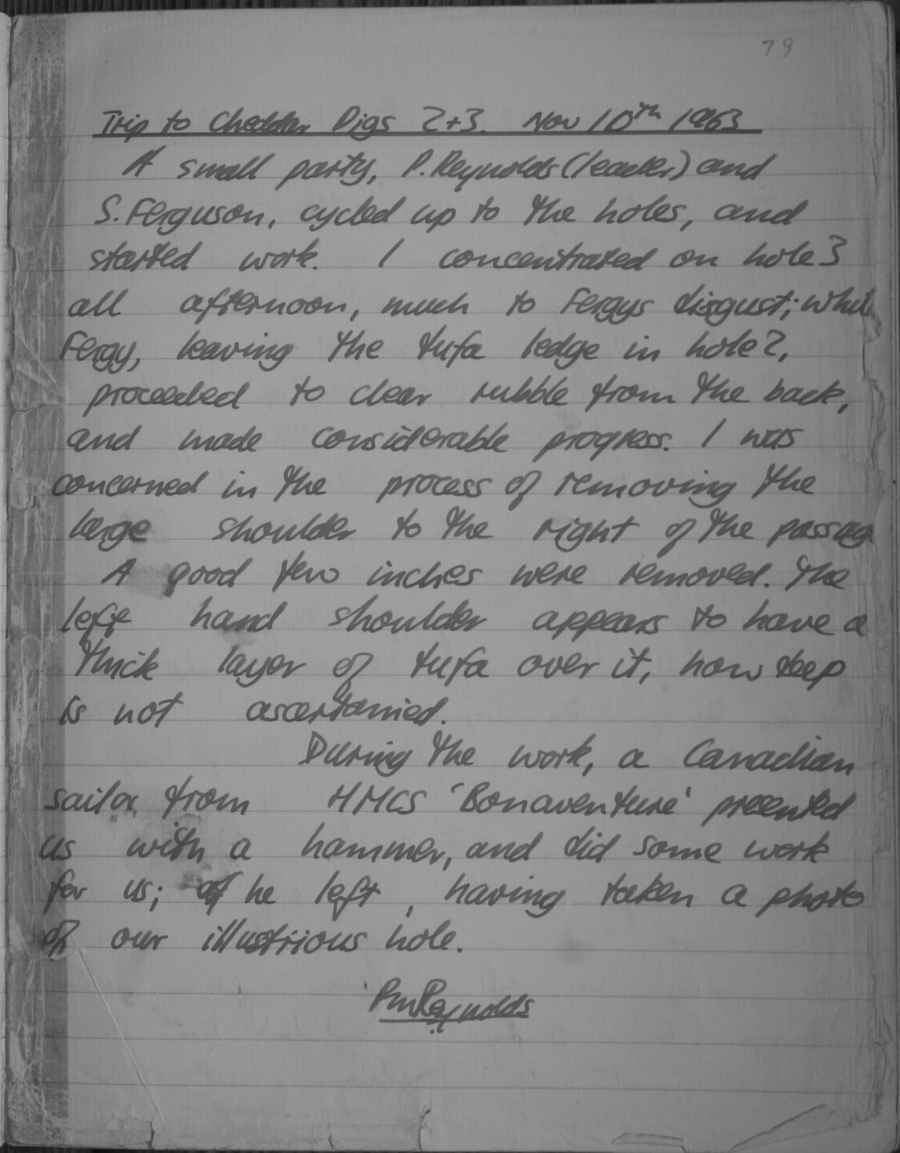 79
Trip to Cheddar Digs 2+3. Nov 10th 1963
A small party, P.Reynolds (leader) and
S.Ferguson, cycled up to the holes, and
started work. I concentrated on hole 3
all afternoon, much to Fergys disgust; while
Fergy, leaving the tufa ledge in hole 2,
proceeded to clear rubble from the back,
and made considerable progress. I was
concerned in the process of removing the
large shoulder to the right of the passage
A good few inches were removed. The
left hand shoulder appears to have a
thick layer of tufa over it, how deep
is not ascertained.
During the work, a Canadian
sailor from HMCS 'Bonaventure' presented
us with a hammer, and did some work
for us; he left, having taken a photo
of our illustrious hole.
PmReynolds